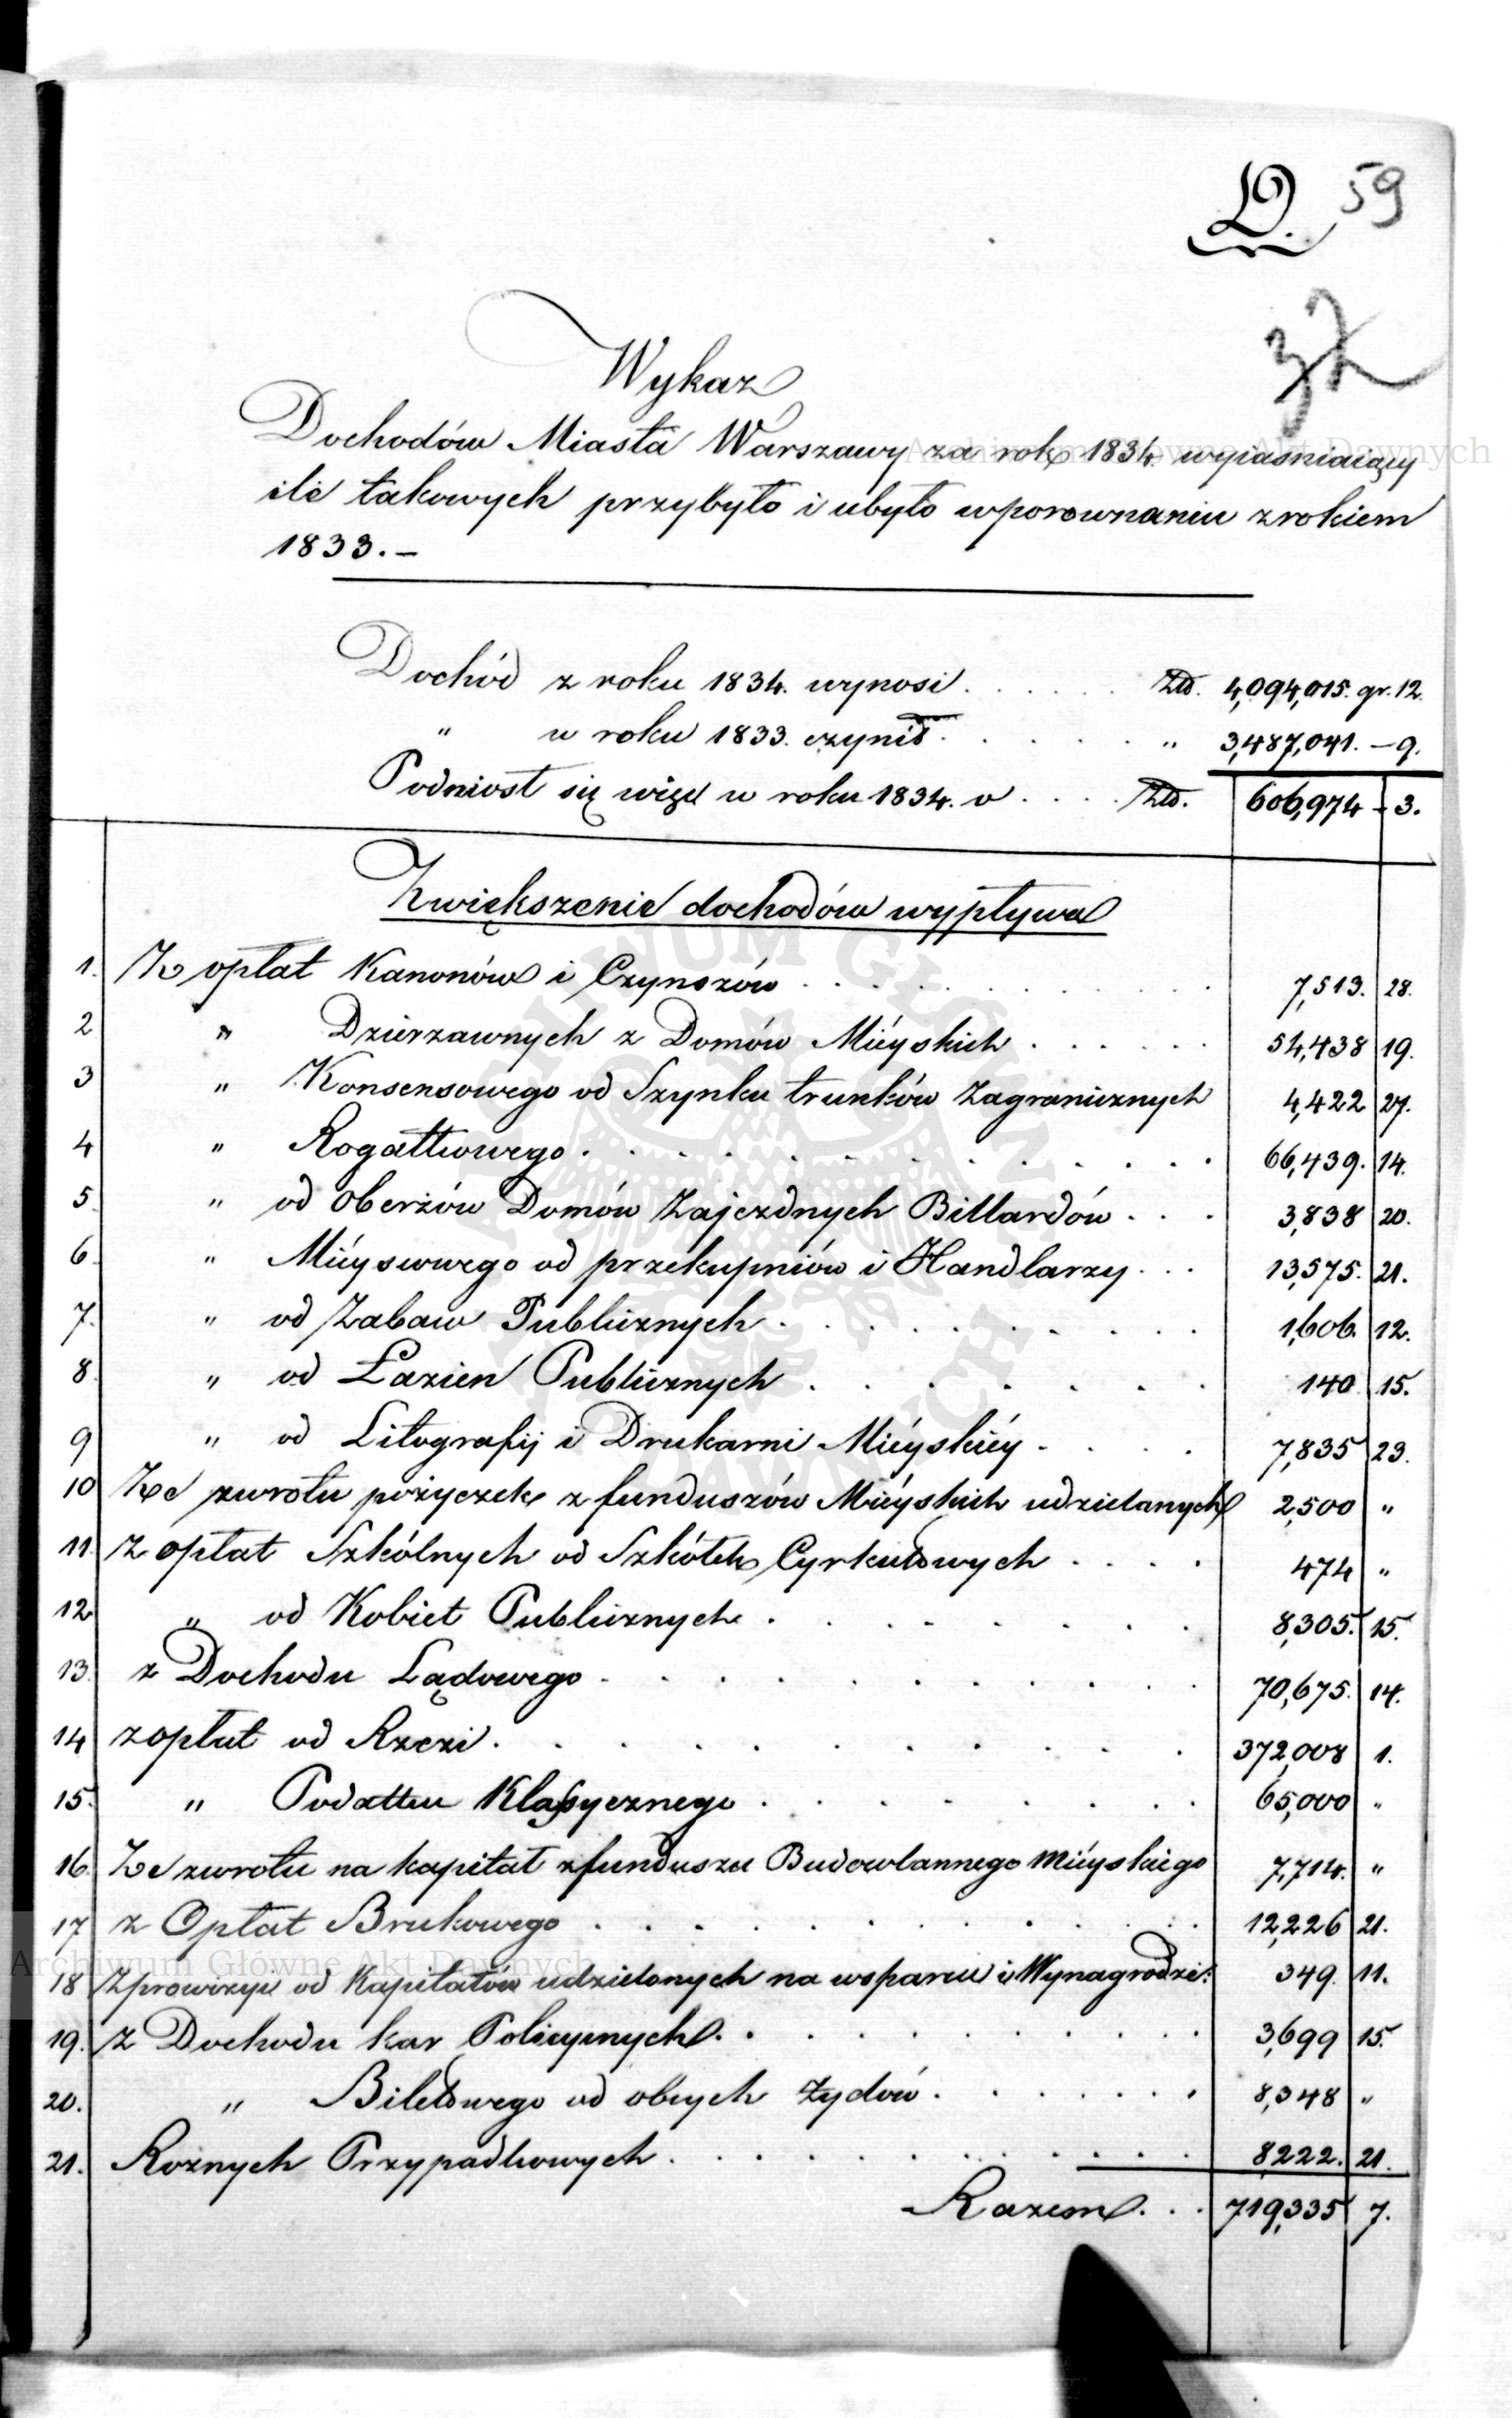 D. 59
37
Wykaz
Dochodów Miasta Warszawy za rok 1834. wyiaśniaiący
ile takowych przybyło i ubyło w porownaniu z rokiem
1833. –
Dochód z roku 1834. wynosi . . . . . . Złł. 4,094,015. gr. 12.
" w roku 1833. czynił . . . . . " 3,487,041. – 9.
Podniosł się więc w roku 1834. o . . . . Złł. 606,974 – 3.
Zwiększenie dochodów wypływa
1. Z opłat Kanonów i Czynszów . . . 7,513. 28.
2 " Dzierzawnych z Domów Mieyskich . . . 54,438 19.
3 " Konsensowego od Szynku trunków Zagranicznych 4,422 27.
4 " Rogatkowego . . . 66,439. 14.
5. " od Oberżów Domów Zajezdnych Billardów . . . 3,838 20.
6. " Mieyscowego od przekupniów i Handlarzy . . . 13,575. 21.
7. " od Zabaw Publicznych . . . 1,606. 12.
8. " od Łazien Publicznych . . . 140. 15.
9 " od Litografij i Drukarni Mieyskiéy . . . 7,835 23.
10 Ze zwrotu pożyczek z funduszów Mieyskich udzielanych 2,500 "
11. z opłat Szkólnych od Szkółek Cyrkułowych . . . 474 "
12. " od Kobiet Publicznych . . . 8,305. 15.
13. z Dochodu Lądowego . . . 70,675. 14.
14 z opłat od Rzezi . . . 372,008 1.
15. " Podatku Klassycznego . . . 65,000 "
16. Ze zwrotu na kapitał z funduszu Budowlannego Mieyskiego 7,714. "
17 z Opłat Brukowego . . . 12,226 21.
18 z prowizyi od Kapitałów udzielonych na wsparcie i Wynagrodze: 349. 11.
19. z Dochodu kar Policyinych . . . 3,699 15.
20. " Biletowego od obcych Żydów . . . 8,348 "
21. Roznych Przypadkowych . . . 8222. 21.
Razem . . . 719,335 7.
Archiwum Główne Akt Dawnych
Archiwum Główne Akt Dawnych
ARCHIWUM GŁÓWNE AKT DAWNYCH